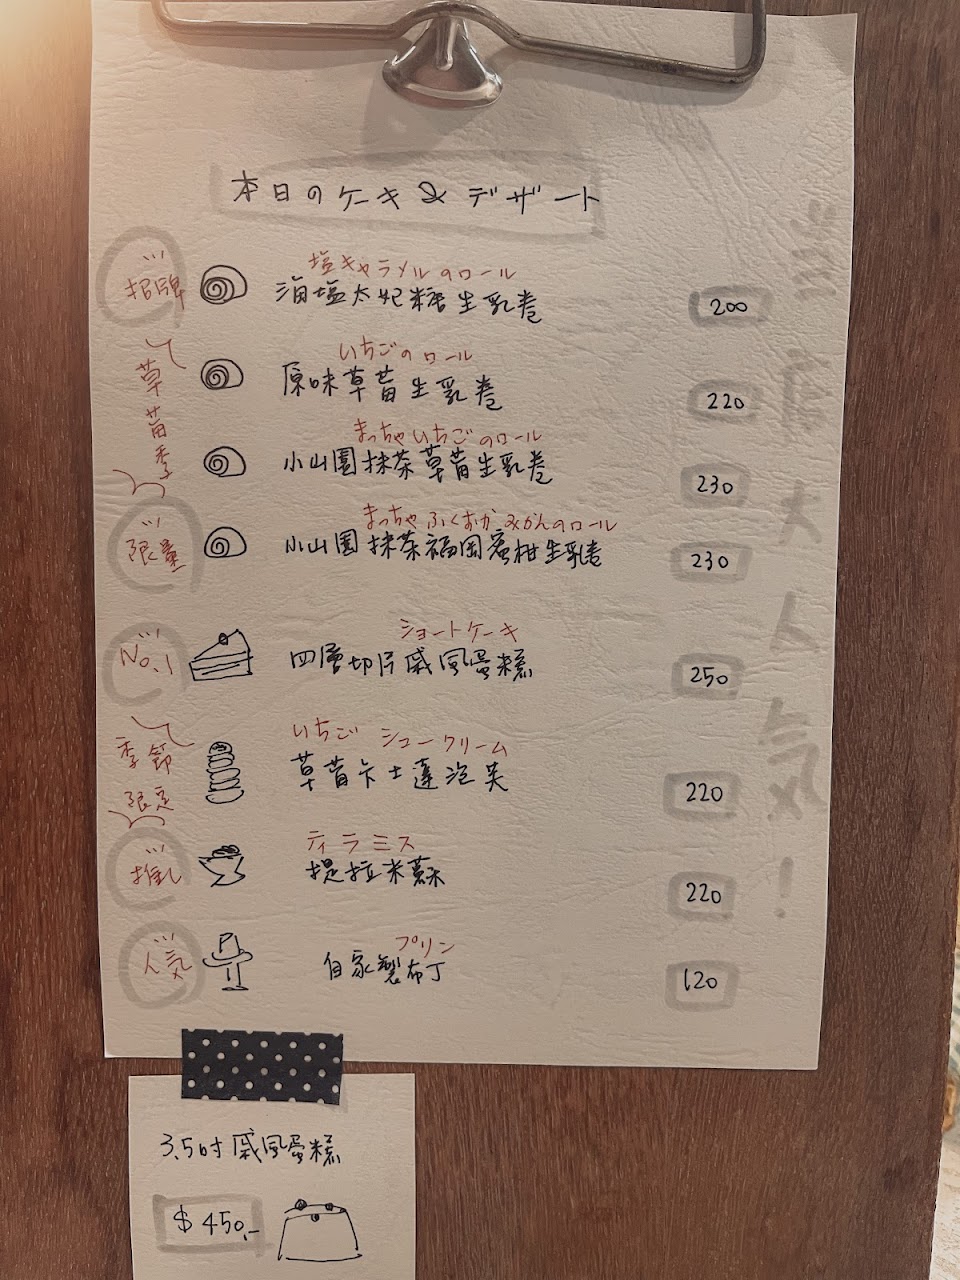 本日のケーキ & デザート
招牌
塩キャラメルのロール
海塩太妃糖生乳卷
200
草莓季
いちごのロール
原味草莓生乳卷
220
まっちゃいちごのロール
小山園抹茶草莓生乳卷
230
限量
まっちゃふくおかみかんのロール
小山園抹茶福岡蜜柑生乳卷
230
No.1
ショートケーキ
四層切片戚風蛋糕
250
季節
限定
いちご シュークリーム
草莓卡士達泡芙
220
推し
ティラミス
提拉米蘇
220
人気
プリン
自家製布丁
120
大人気!
3.5吋戚風蛋糕
$450.-